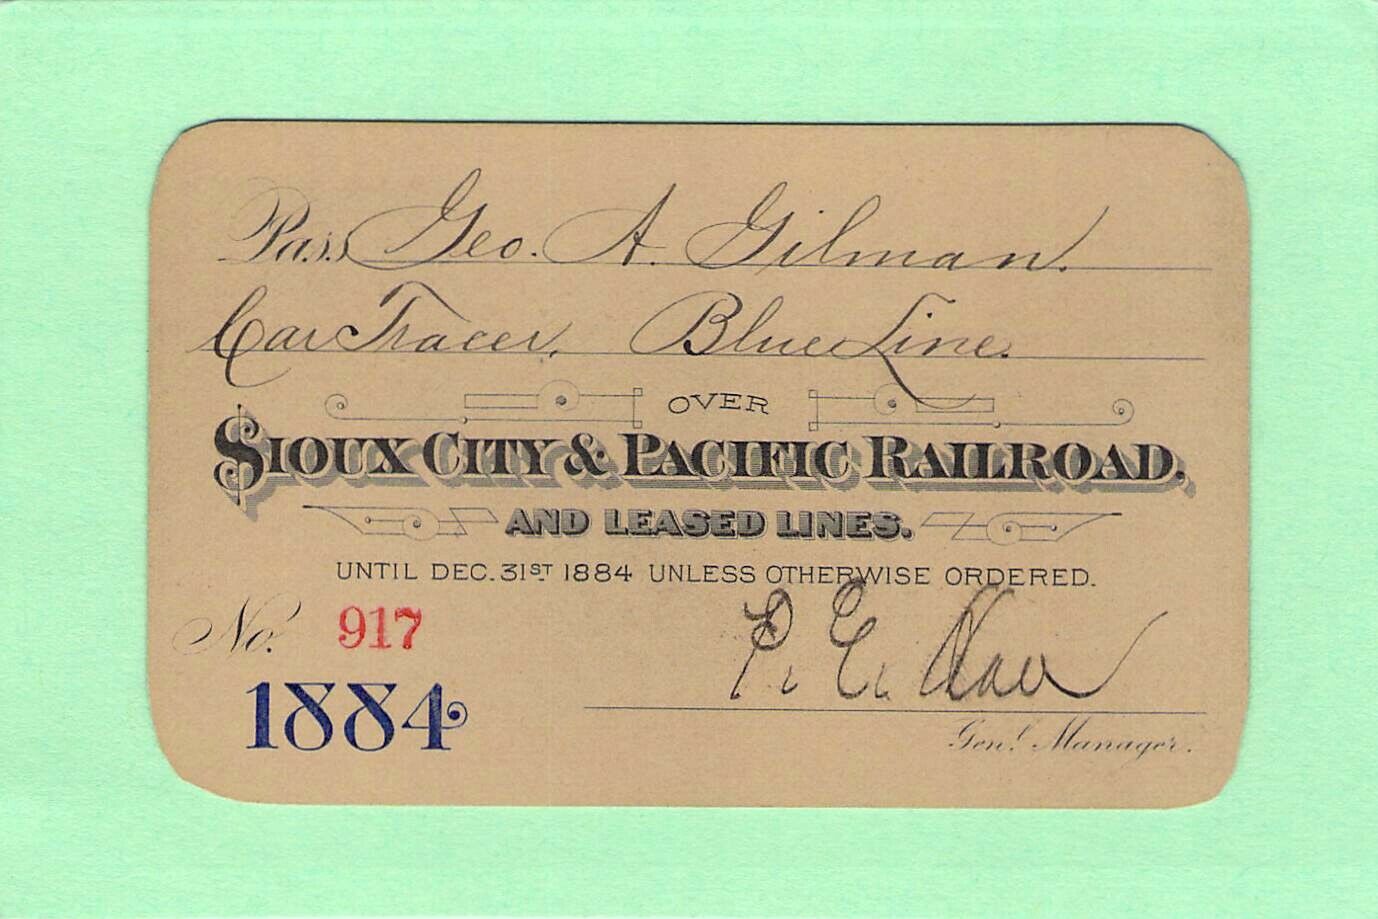 Pass Geo. A. Gilman.
Car Tracer, Blue Line.
OVER
SIOUX CITY & PACIFIC RAILROAD,
AND LEASED LINES.
UNTIL DEC. 31ST 1884 UNLESS OTHERWISE ORDERED.
No. 917
P. E.
1884
Genl. Manager.